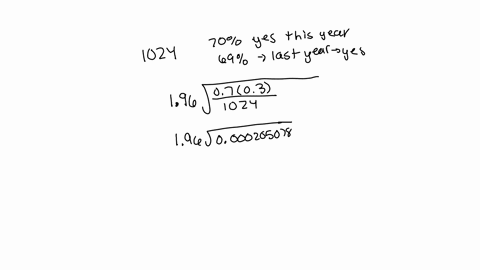 1024
70% yes this year
69% → last year → yes
1.96 √(0.7(0.3)/1024)
1.96 √0.000205078